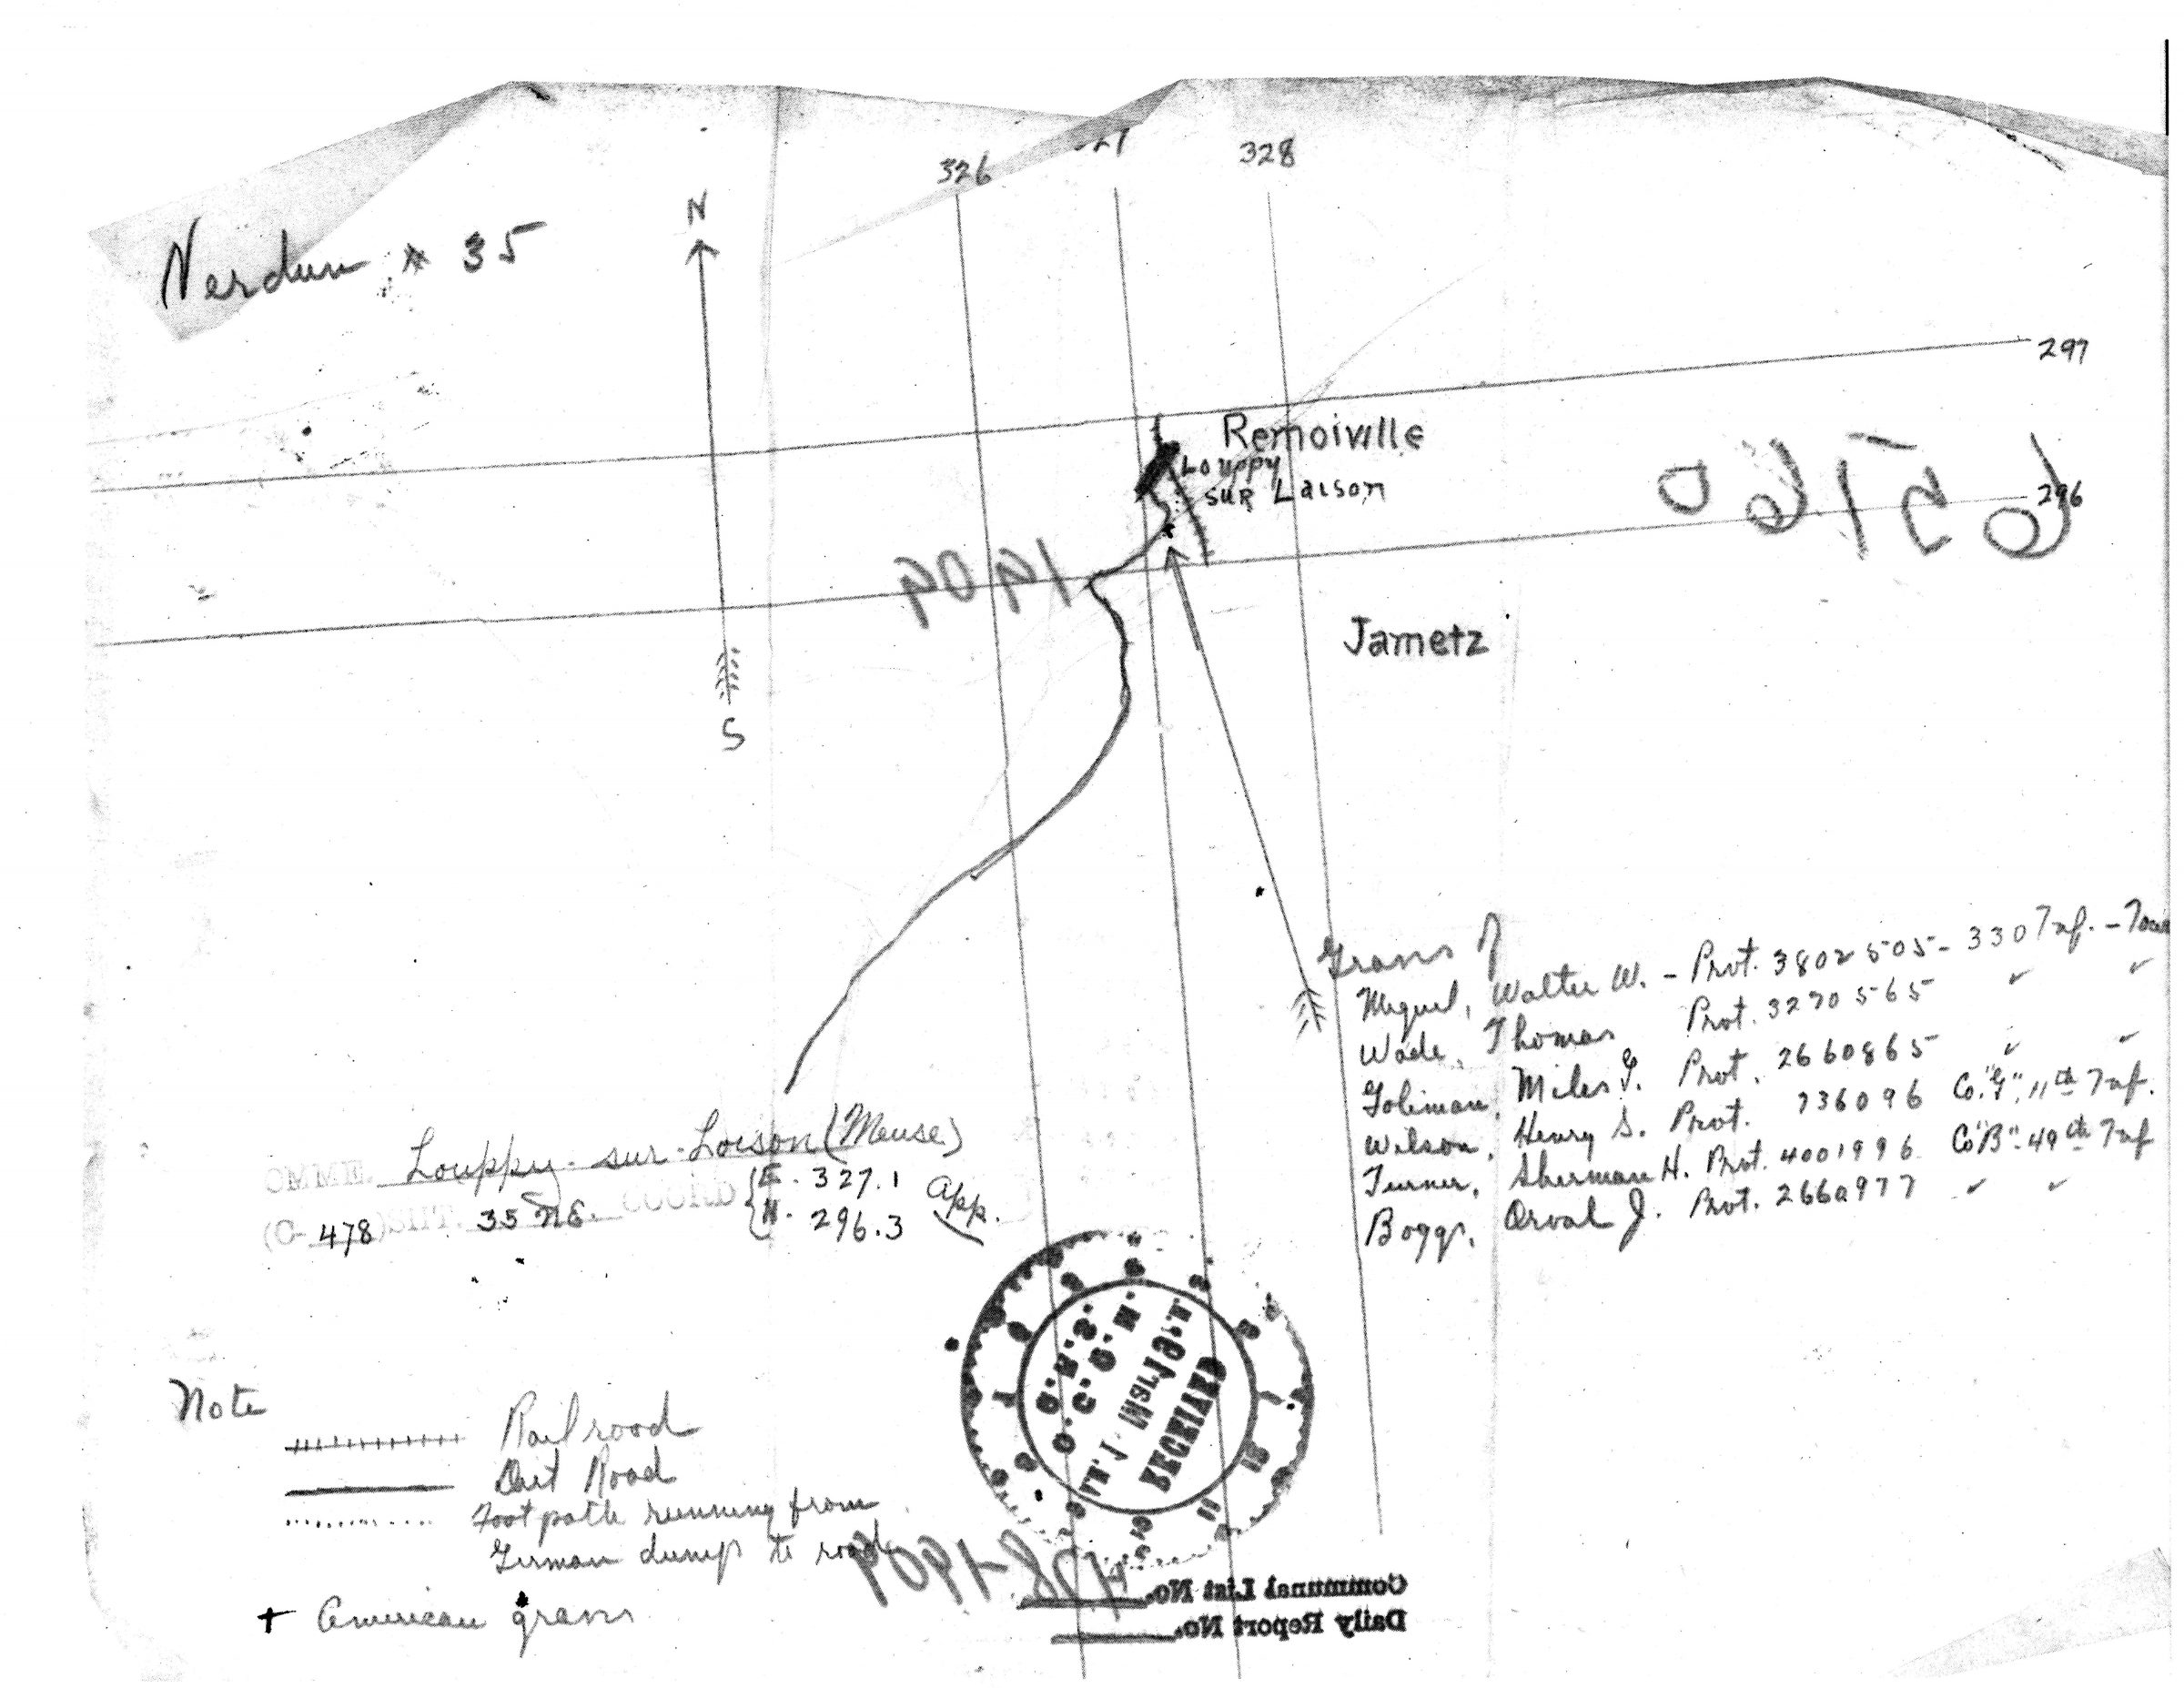 326
328
N
Verdun # 35
297
Remoiville
Louppy
sur Laison
65160
296
1909
Jametz
S
Graves of
Miguel, Walter W. - Prvt. 3802505 - 330 Inf. -
Wade, Thomas Prvt. 3270565 ✓ ✓
Goliman, Miles J. Prvt. 2660865 ✓ ✓
Wilson, Henry S. Prvt. 736096 Co. "G", 11th Inf.
Turner, Sherman H. Prvt. 4001996 Co "B" - 49th Inf
Boggs, Orval J. Prvt. 2660977 ✓ ✓
OMME. Louppy-sur-Loison (Meuse)
(C-478) SHT. 35 NE. COORD { E. 327.1 App.
N. 296.3
G.R.S.
O.C.G.M.
RECEIVED
Note
Railroad
Dirt Road
Foot path running from
German dump to road
+ American graves
478-1909
Communal List No.
Daily Report No.